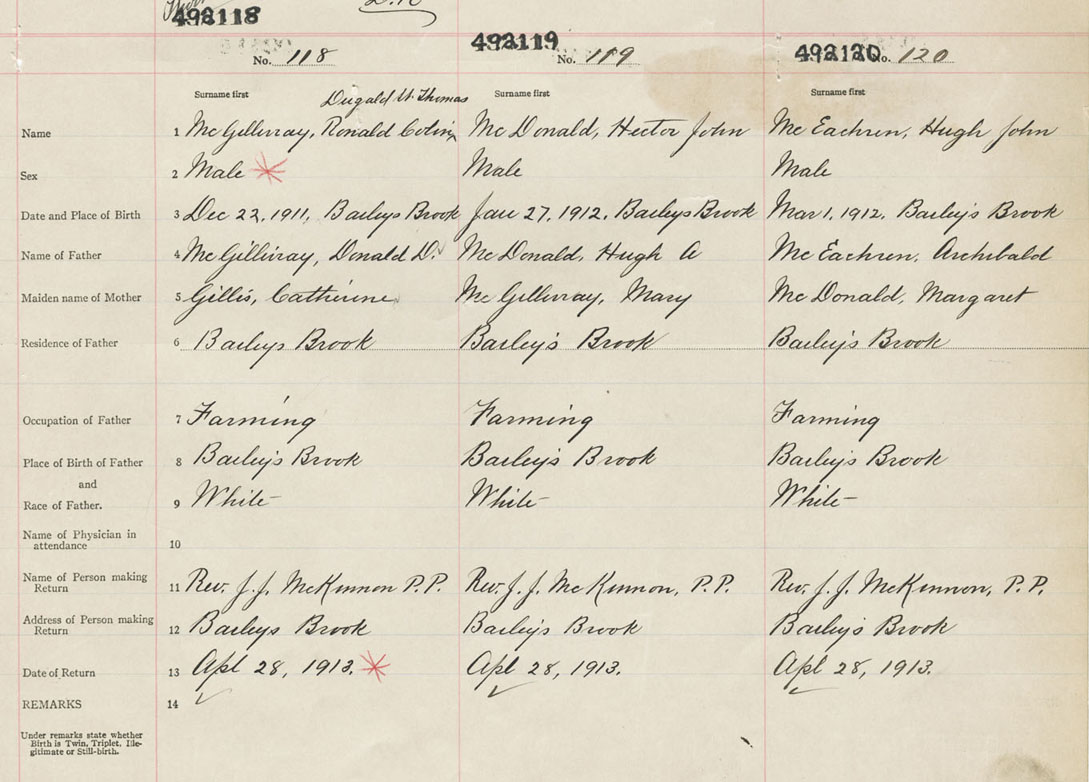 492118 492119 492120
No. 118 No. 119 No. 120
Surname first Dugald Thomas Surname first Surname first
Name 1 McGillivray, Ronald Colin McDonald, Hector John McEachren, Hugh John
Sex 2 Male Male Male
Date and Place of Birth 3 Dec 22, 1911, Baileys Brook Jan 27, 1912, Baileys Brook Mar 1, 1912, Bailey's Brook
Name of Father 4 McGillivray, Donald D. McDonald, Hugh A McEachren, Archibald
Maiden name of Mother 5 Gillis, Catherine McGillivray, Mary McDonald, Margaret
Residence of Father 6 Baileys Brook Bailey's Brook Bailey's Brook
Occupation of Father 7 Farming Farming Farming
Place of Birth of Father 8 Bailey's Brook Bailey's Brook Bailey's Brook
and
Race of Father. 9 White White White
Name of Physician in
attendance 10
Name of Person making
Return 11 Rev. J. J. McKinnon P.P. Rev. J. J. McKinnon, P.P. Rev. J. J. McKinnon, P.P.
Address of Person making
Return 12 Baileys Brook Bailey's Brook Bailey's Brook
Date of Return 13 Apl 28, 1913. Apl 28, 1913. Apl 28, 1913.
REMARKS 14
Under remarks state whether
Birth is Twin, Triplet, Ille-
gitimate or Still-birth.